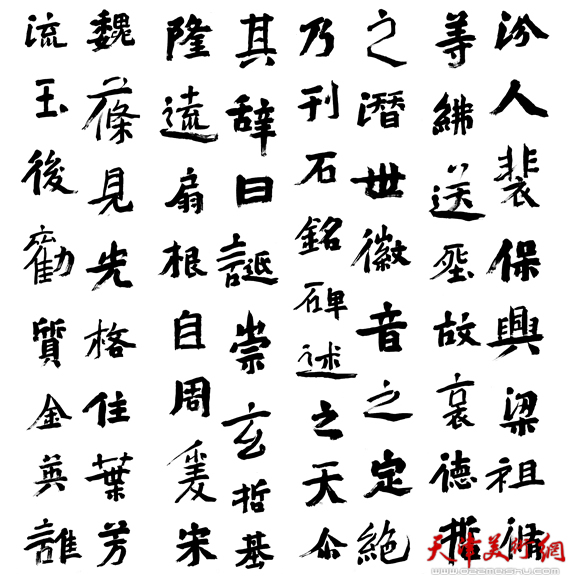 汾人裴保興梁祖脩
等紼送故哀德哲
之潛世徽音之定絶
乃刊石銘碑述之天尒
其辭曰誕崇玄哲基
隆遠扇根自周爰宋
魏蓧見光格佳葉芳
流玉後勸質金英誰
天津美術網
www.022meishu.com